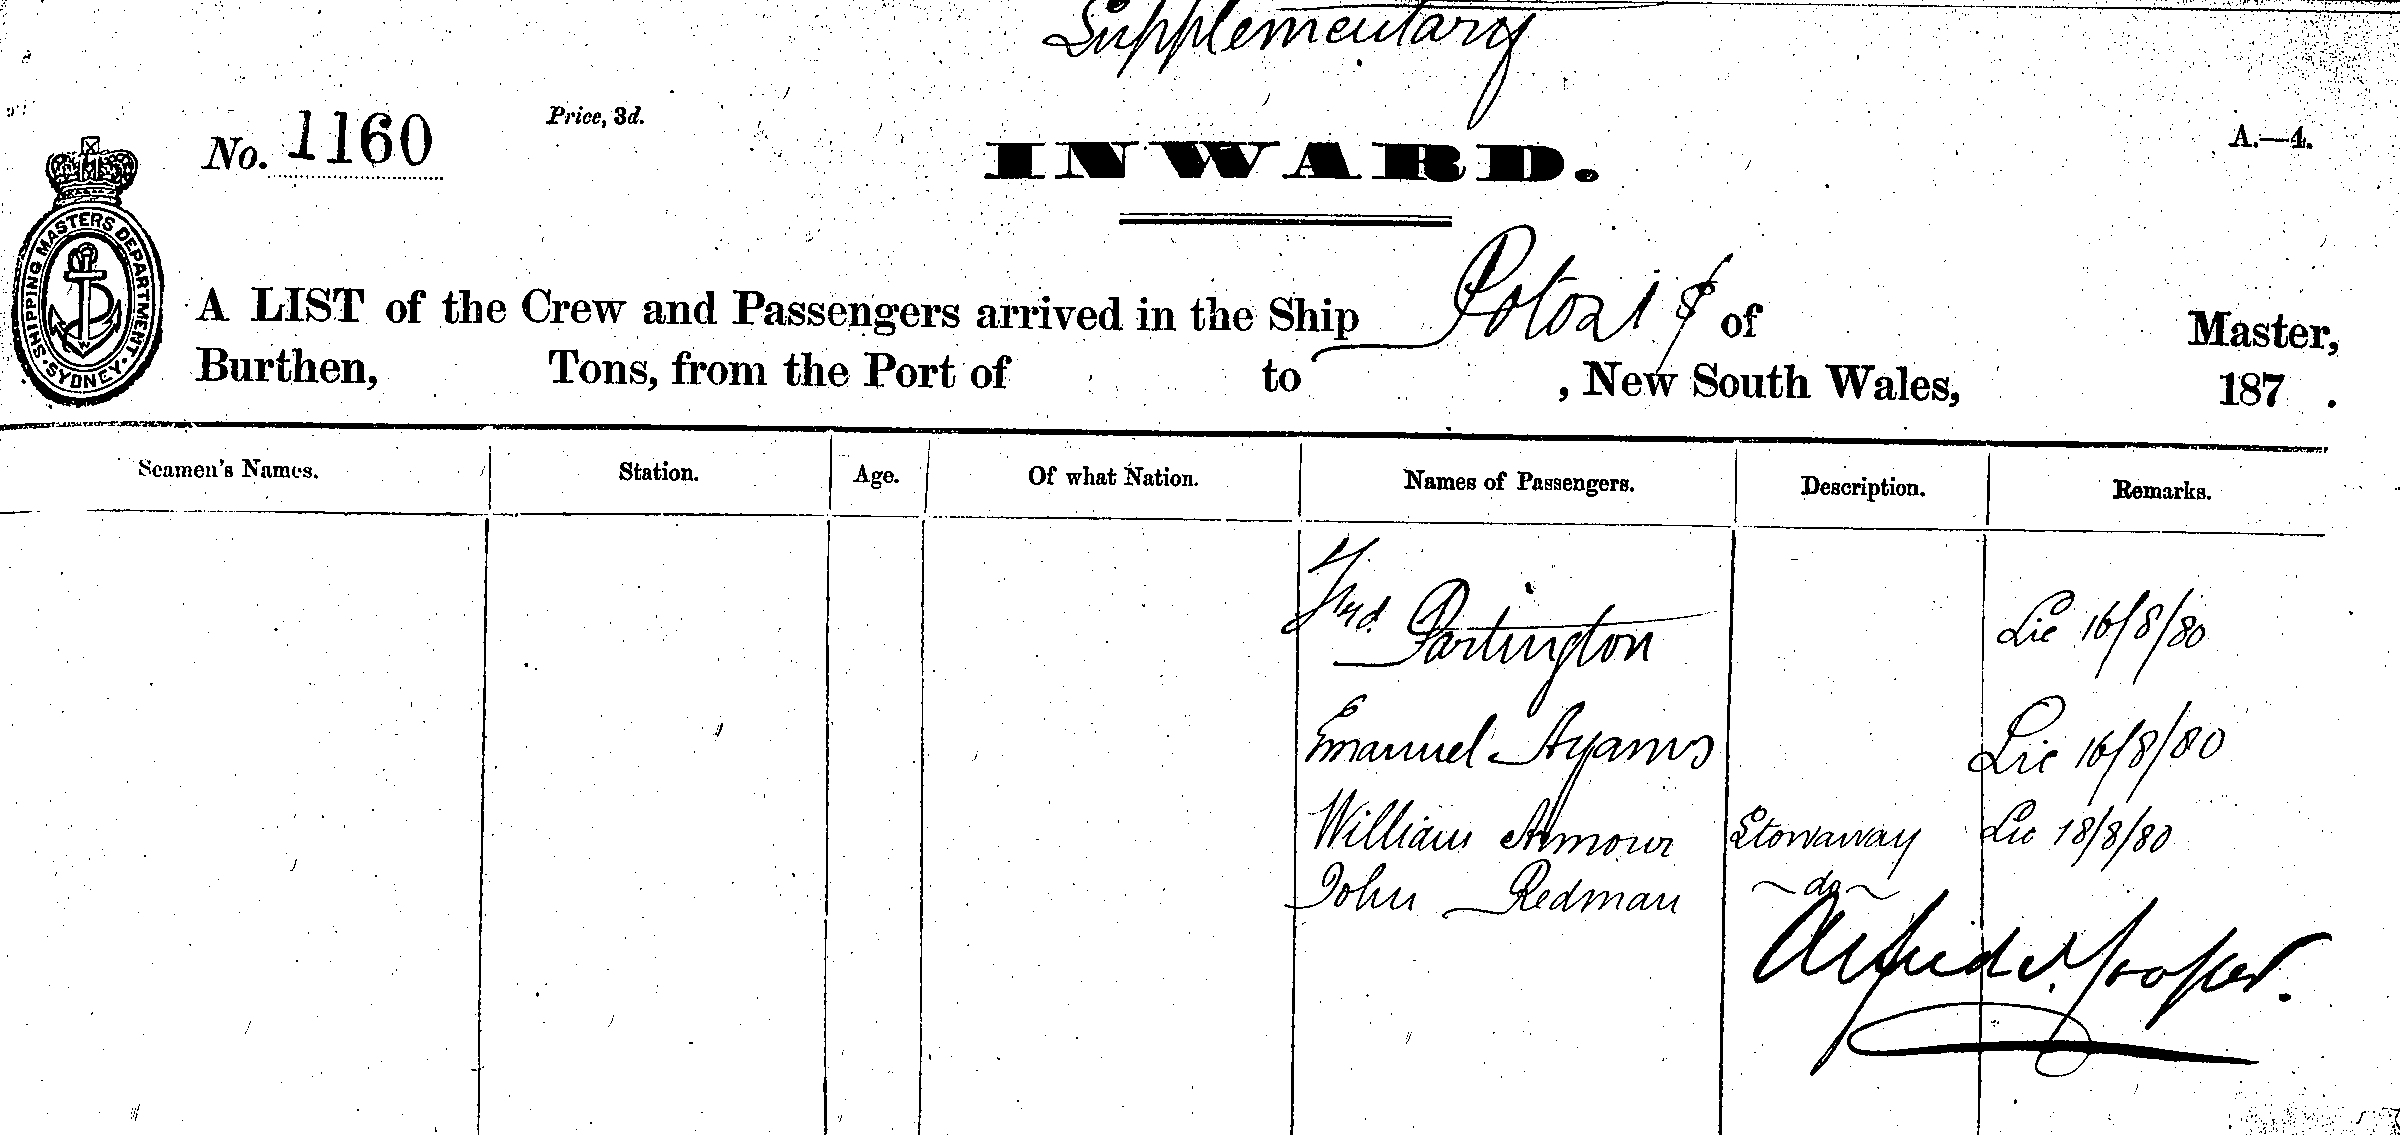 Supplementary
No. 1160
Price, 3d.
INWARD.
A.—4.
SHIPPING MASTERS DEPARTMENT. SYDNEY.
A LIST of the Crew and Passengers arrived in the Ship Potosi of Master,
Burthen, Tons, from the Port of to , New South Wales, 187 .
Seamen's Names. Station. Age. Of what Nation. Names of Passengers. Description. Remarks.
Partington Lic 16/8/80
Emanuel Ayams Lic 16/8/80
William Armour Stowaway Lic 18/8/80
John Redman do
Alfred Cooper.